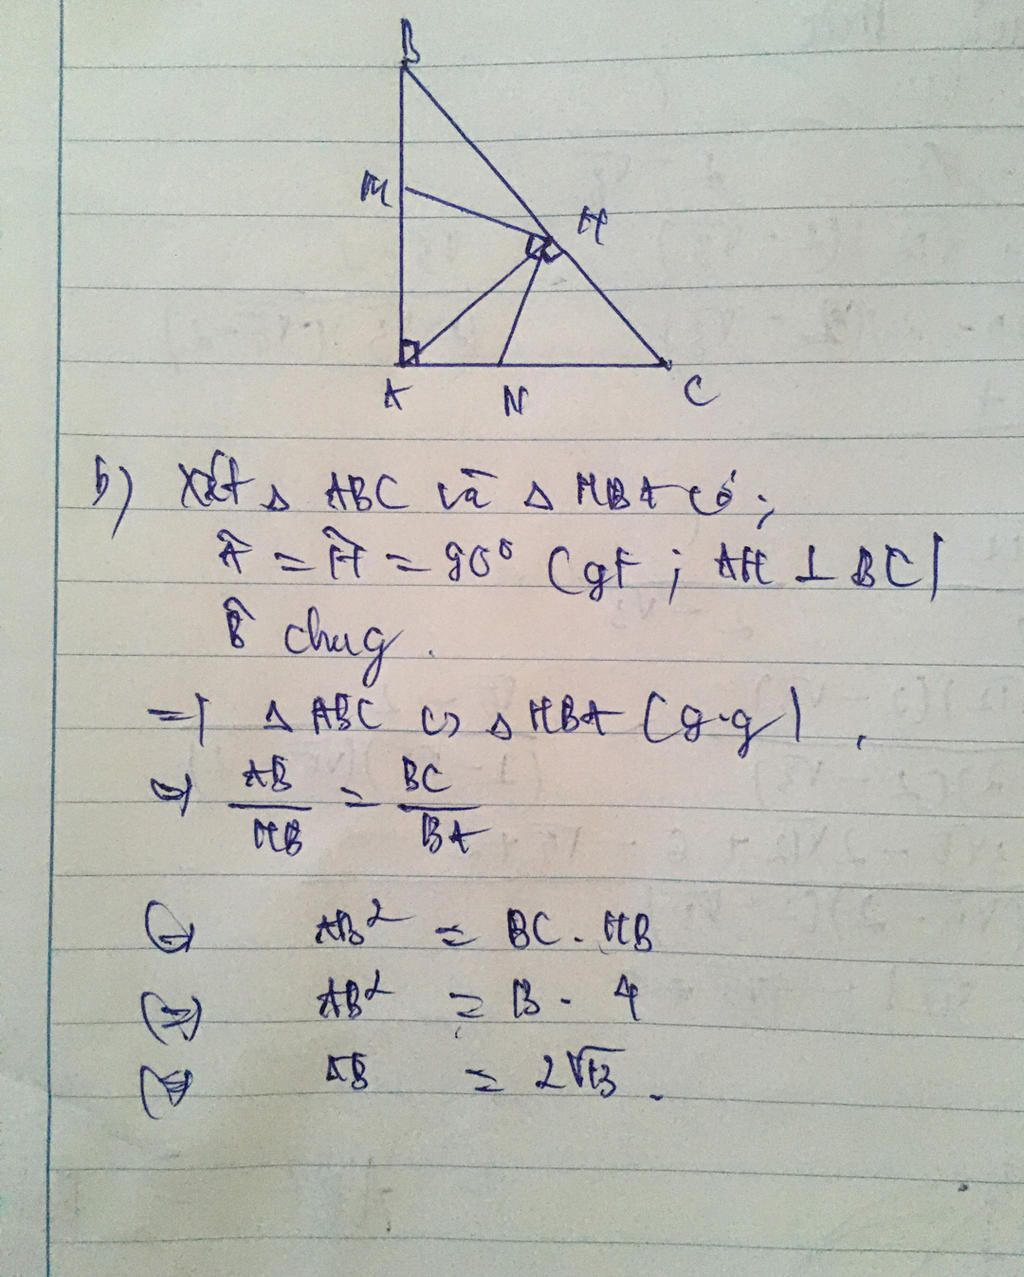 B
M
H
A N C
b) Xét Δ ABC và Δ HBA có;
Â = Ĥ = 90° (gt; AH ⊥ BC)
B̂ chug.
=) Δ ABC ᔕ Δ HBA (g.g).
=) AB/HB = BC/BA
(=) AB² = BC. HB
(=) AB² = 13. 4
(=) AB = 2√13.